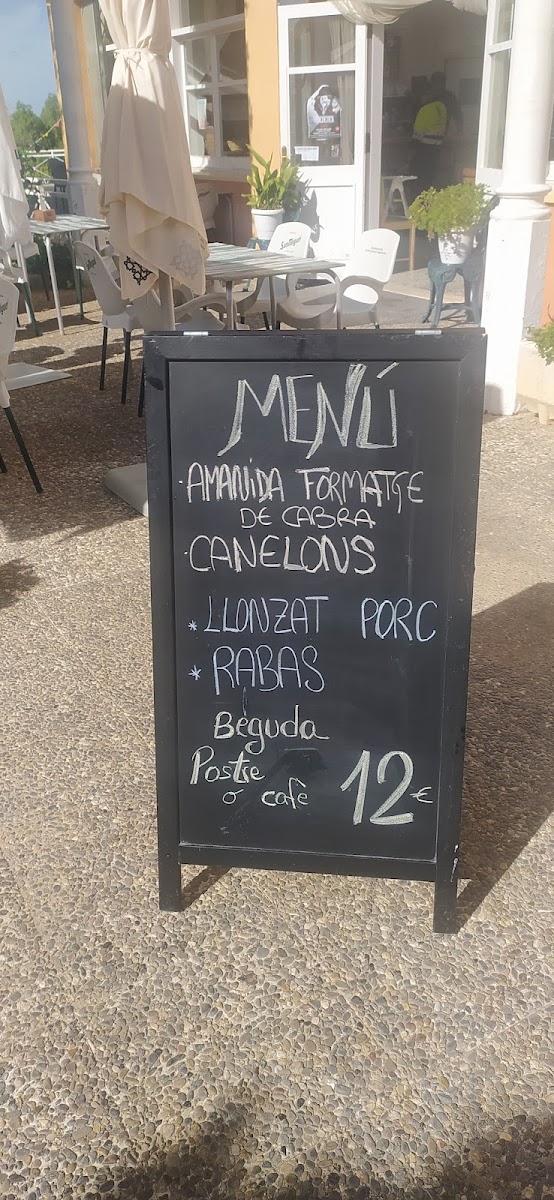 MENÚ
·AMANIDA FORMATGE
DE CABRA
·CANELONS
* LLONZAT PORC
* RABAS
Beguda
Postre
o cafè 12€